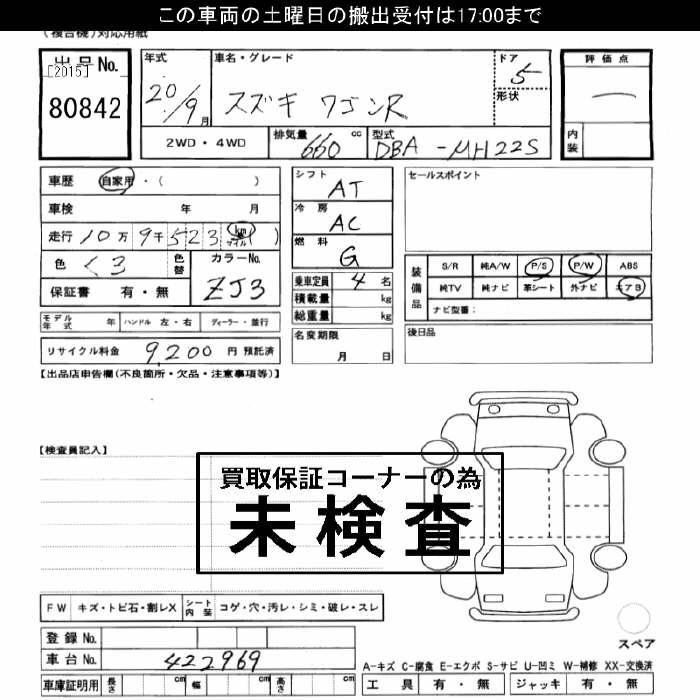 この車両の土曜日の搬出受付は17:00まで
(複合機)対応用紙
出品No.
[2015]
80842
年式 20/9月
車名・グレード スズキ ワゴンR
ドア 5
形状
評価点 —
内装
2WD・4WD
排気量 660 cc
型式 DBA-MH22S
車歴 自家用・( )
車検 年 月
走行 10万9千523 km マイル ( )
色 くろ 色替
カラーNo. ZJ3
保証書 有・無
シフト AT
冷房 AC
燃料 G
乗車定員 4名
積載量 kg
総重量 kg
セールスポイント
装備品 S/R 純A/W P/S P/W ABS
純TV 純ナビ 革シート 外ナビ エアB
ナビ型番:
モデル年式 年 ハンドル 左・右 ディーラー・並行
名変期限 月 日
後日品
リサイクル料金 9,200 円 預託済
【出品店申告欄(不良箇所・欠品・注意事項等)】
【検査員記入】
買取保証コーナーの為
未検査
FW キズ・トビ石・割レX シート内装 コゲ・穴・汚レ・シミ・破レ・スレ
登録No.
車台No. 422969
車庫証明用 長さ cm 幅 cm 高さ cm
スペア
A-キズ C-腐食 E-エクボ S-サビ U-凹ミ W-補修 XX-交換済
工具 有・無 ジャッキ 有・無